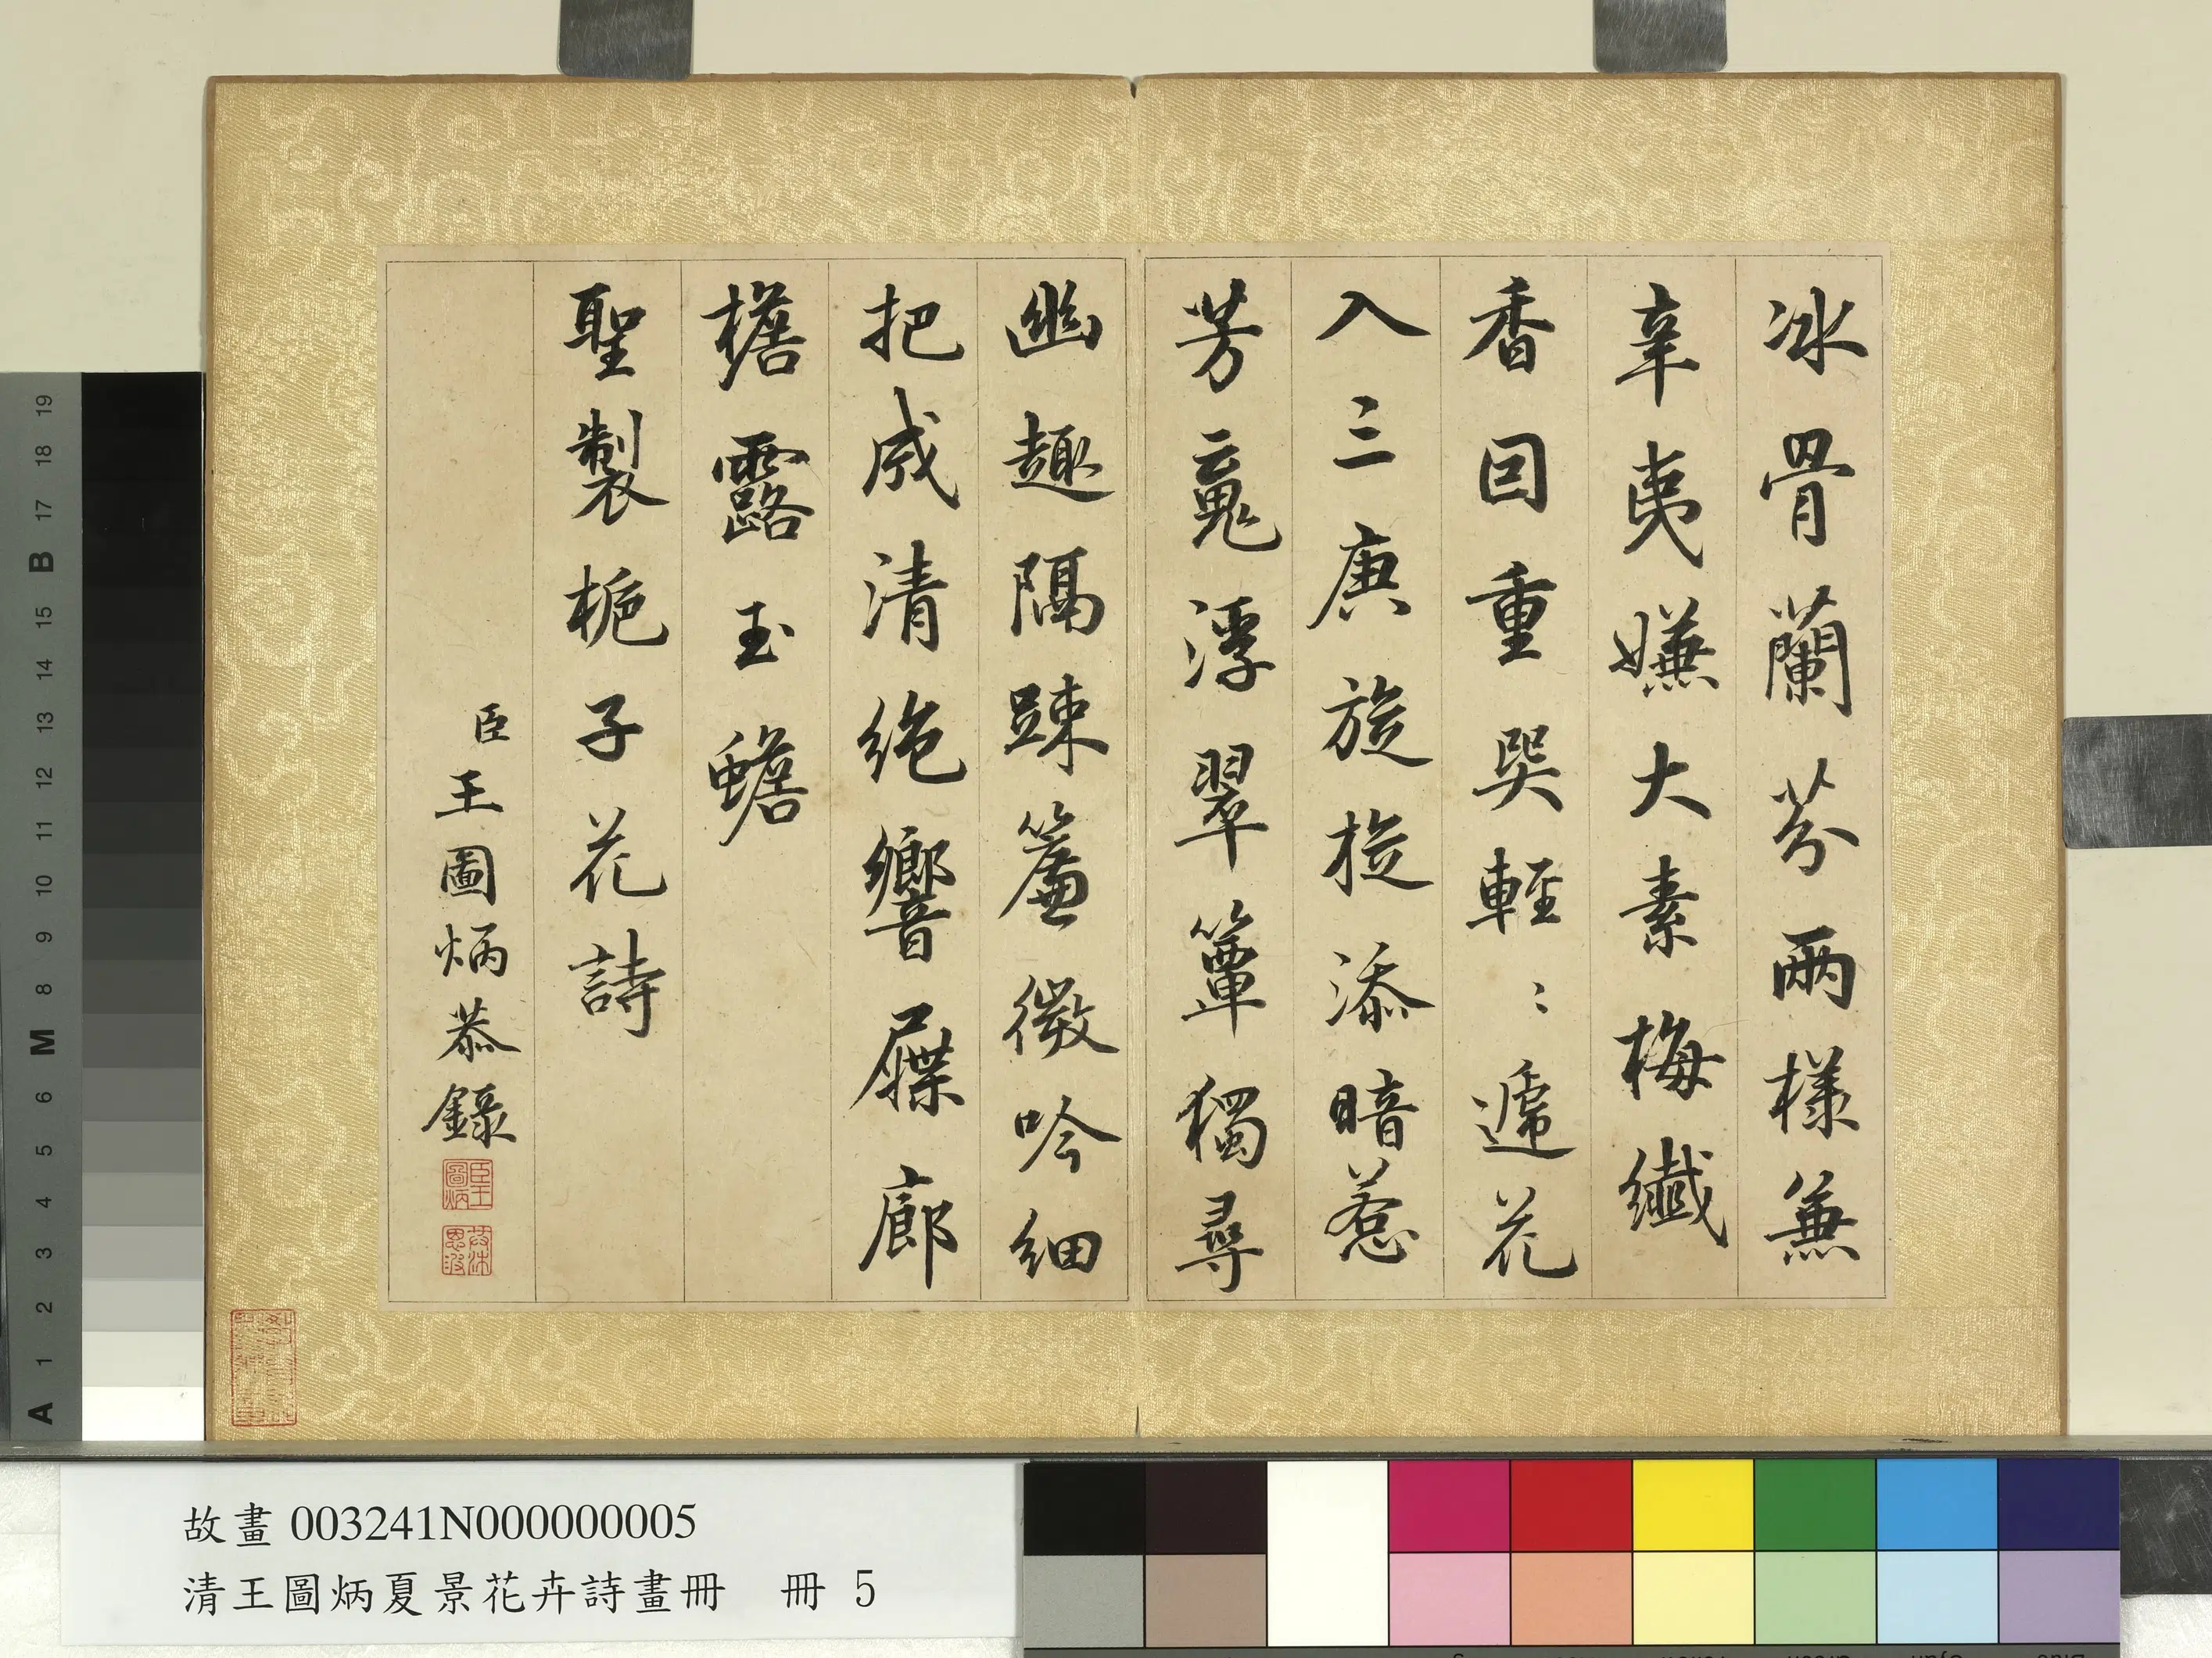 冰骨蘭芬兩樣兼
辛夷嫌大素梅纖
香因重哭輕〻遞花
入三庚旋旋添暗惹
芳䰟浮翠簟獨尋
幽趣隔踈簾微吟細
把成清绝響屧廊
檐露玉蟾
聖製梔子花詩
臣王圖炳恭錄
臣王圖炳
故畫 003241N000000005
清王圖炳夏景花卉詩畫冊 冊 5
19
18
17
B
15
14
13
12
11
10
9
8
M
6
5
4
3
2
1
A